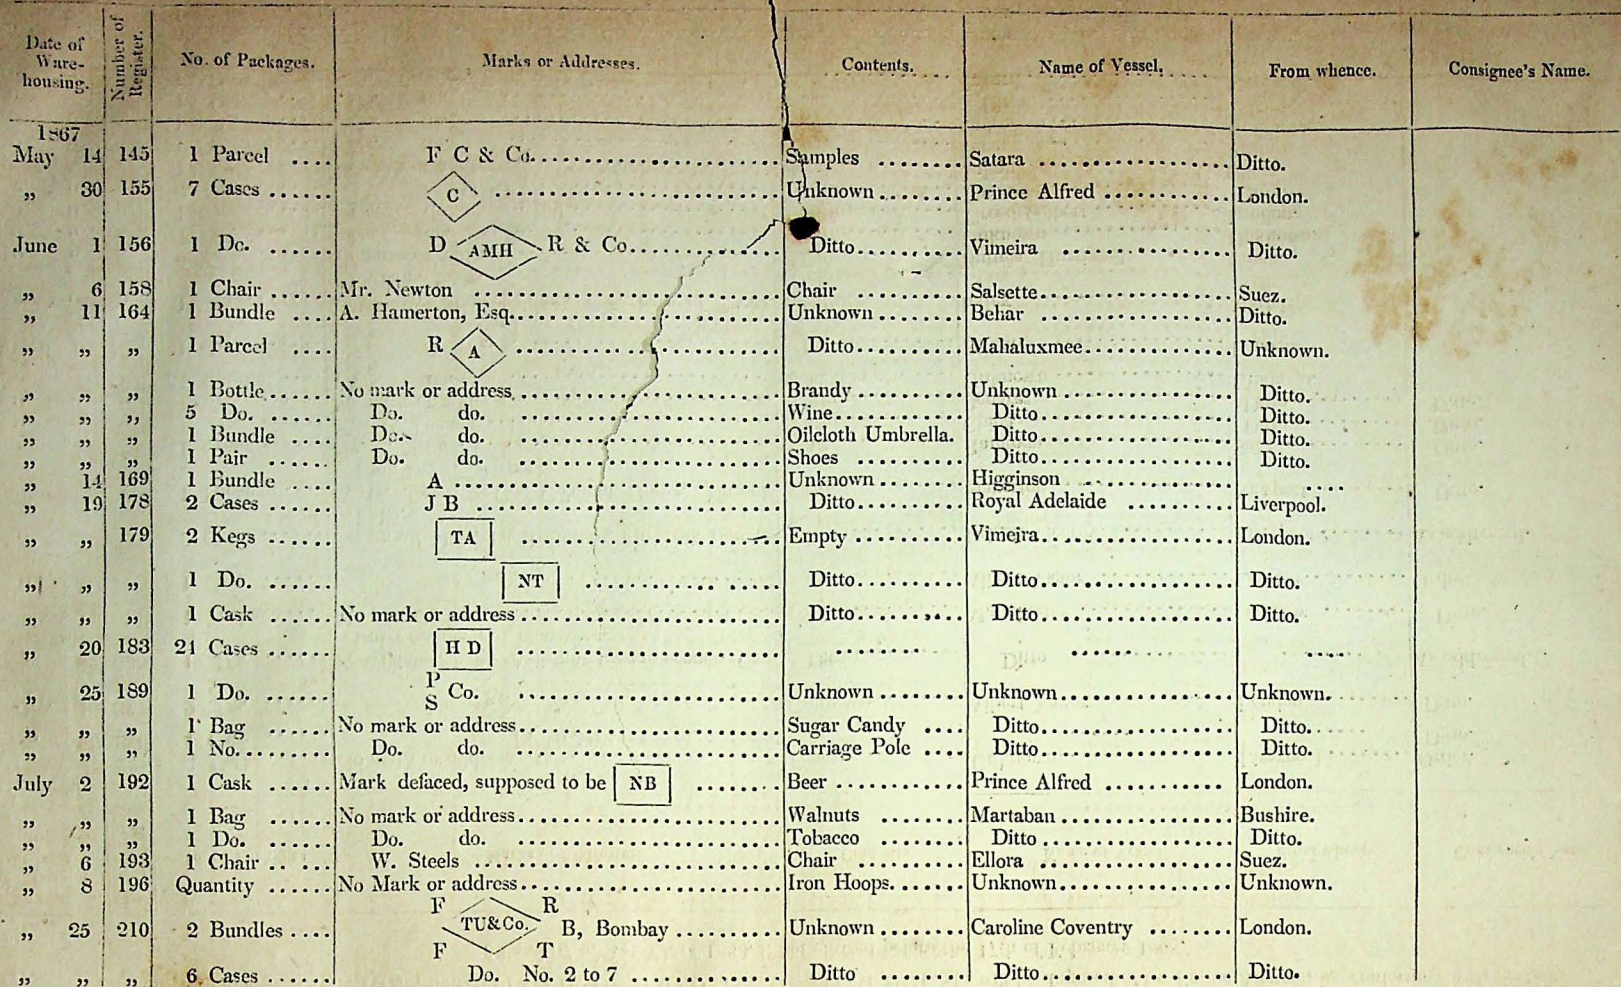 Date of Ware-housing. Number of Register. No. of Packages. Marks or Addresses. Contents. Name of Vessel. From whence. Consignee's Name.
1867
May 14 145 1 Parcel .... F C & Co. Samples ........ Satara .................. Ditto.
„ 30 155 7 Cases ...... C .............................. Unknown ........ Prince Alfred ............ London.
June 1 156 1 Do. ...... D AMH R & Co. Ditto......... Vimeira ................ Ditto.
„ 6 158 1 Chair ...... Mr. Newton .............................. Chair .......... Salsette.................. Suez.
„ 11 164 1 Bundle .... A. Hamerton, Esq. Unknown ........ Behar .................. Ditto.
„ „ „ 1 Parcel .... R A .............................. Ditto......... Mahaluxmee.............. Unknown.
„ „ „ 1 Bottle...... No mark or address .............................. Brandy .......... Unknown ................ Ditto.
„ „ „ 5 Do. ...... Do. do. .............................. Wine............ Ditto.................. Ditto.
„ „ „ 1 Bundle .... Do. do. .............................. Oilcloth Umbrella. Ditto.................. Ditto.
„ „ „ 1 Pair ...... Do. do. .............................. Shoes .......... Ditto.................. Ditto.
„ 14 169 1 Bundle .... A .............................. Unknown ........ Higginson .............. ....
„ 19 178 2 Cases ...... J B .............................. Ditto......... Royal Adelaide .......... Liverpool.
„ „ 179 2 Kegs ...... TA .............................. Empty .......... Vimeira.................. London.
„ „ „ 1 Do. ...... NT .................... Ditto......... Ditto.................. Ditto.
„ „ „ 1 Cask ...... No mark or address.............................. Ditto......... Ditto.................. Ditto.
„ 20 183 21 Cases ...... H D .............................. ........ ...... ....
„ 25 189 1 Do. ...... P S Co. .............................. Unknown ........ Unknown................ Unknown.
„ „ „ 1 Bag ...... No mark or address.............................. Sugar Candy .... Ditto.................. Ditto.
„ „ „ 1 No. ........ Do. do. .............................. Carriage Pole .... Ditto.................. Ditto.
July 2 192 1 Cask ...... Mark defaced, supposed to be NB ........ Beer ............ Prince Alfred ............ London.
„ „ „ 1 Bag ...... No mark or address.............................. Walnuts ........ Martaban ................ Bushire.
„ „ „ 1 Do. ...... Do. do. .............................. Tobacco ........ Ditto .................. Ditto.
„ 6 193 1 Chair ...... W. Steels .............................. Chair .......... Ellora .................. Suez.
„ 8 196 Quantity ...... No Mark or address.............................. Iron Hoops....... Unknown................ Unknown.
„ 25 210 2 Bundles .... F R TU&Co. B, Bombay F T .......... Unknown ........ Caroline Coventry ........ London.
„ „ „ 6 Cases ...... Do. No. 2 to 7 .............. Ditto ........ Ditto.................. Ditto.